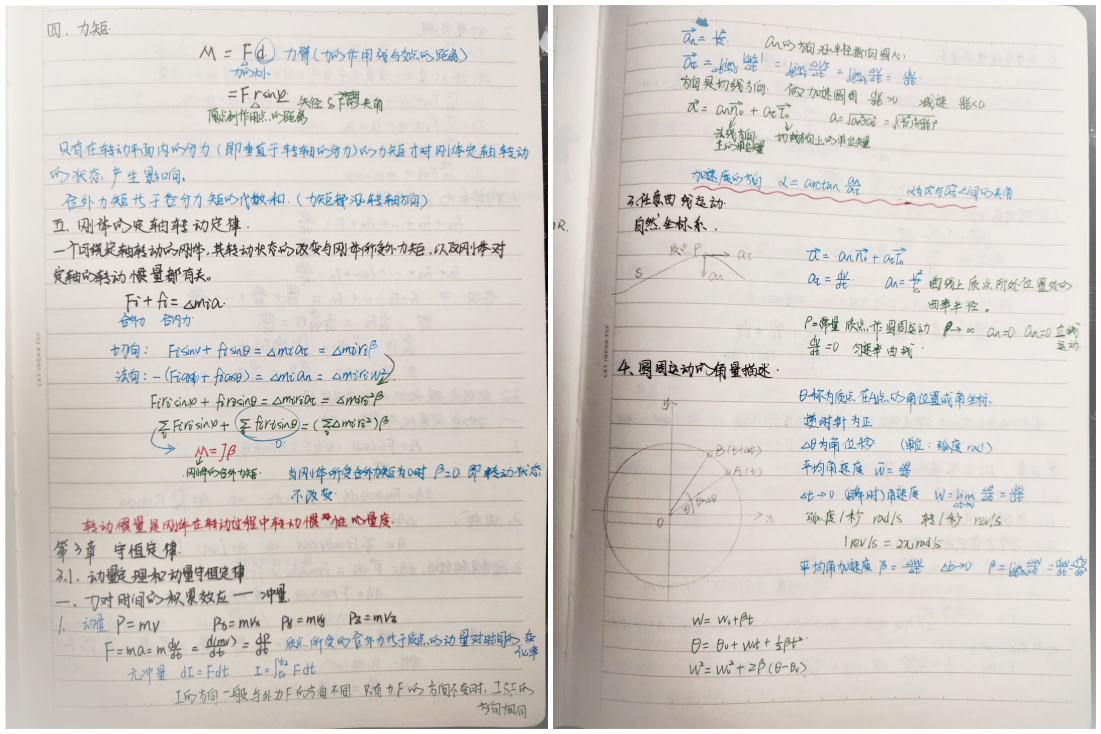 四、力矩
M = Fd 力臂(力的作用线与支点的距离)
力的大小
= Fr sinφ 矢径与F的夹角
原点到作用点的距离
只有在转动平面内的分力(即垂直于转轴的分力)的力矩才对刚体定轴转动
的状态产生影响。
合外力矩代于各分力矩的代数和.(力矩都沿转轴方向)
五、刚体的定轴转动定律
一个可绕定轴转动的刚体,其转动状态的改变与刚体所受外力矩,以及刚体对
定轴的转动惯量都有关。
Fi + fi = Δmia
合外力 合内力
切向: Fisinφ + fisinθ = Δmiat = Δmiriβ
法向: -(Ficosφ + ficosθ) = Δmian = Δmiriw²
Firisinφ + firisinθ = Δmiriat = Δmiri²β
∑Firisinφ + ∑firisinθ = (∑Δmiri²)β
0
M = Jβ
刚体的合外力矩 当刚体所受合外力矩为0时 β=0 即转动状态
不改变
转动惯量是刚体在转动过程中转动惯性的量度
第3章 守恒定律
3.1. 动量定理和动量守恒定律
一、力对时间的积累效应——冲量
1. 动量 P = mv Px = mvx Py = mvy Pz = mvz
F = ma = m dv/dt = d(mv)/dt = dP/dt 质点所受的合外力代于质点的动量对时间的变
化率
元冲量 dI = Fdt I = ∫Fdt
I的方向一般与外力F的方向不同 只有力F的方向不变时, I与F的
方向相同
LET IDEAS FLY
an = v²/r an的方向沿半径指向圆心
方向是切线方向 加速圆周 dv/dt>0 减速 dv/dt<0
a = ann0 + att0
法线方向 切线方向上的单位矢量
上的单位矢量
加速度的方向 α = arctan an/at α为a与at之间的夹角
3.任意曲线运动
自然坐标系.
质点P at
an
S
a = ann0 + att0
at = dv/dt an = v²/ρ 曲线上质点所处位置处的
曲率半径。
ρ=常量 质点作圆周运动 ρ→∞ an=0 an=0 直线
运动
dv/dt=0 匀速率曲线
4、圆周运动的角量描述.
θ称为质点在A点的角位置或角坐标
逆时针为正
Δθ为角位移 (单位:弧度rad)
平均角速度 w = Δθ/Δt
Δt→0 (瞬时)角速度 w = lim Δθ/Δt = dθ/dt
弧度/秒 rad/s 转/秒 rev/s
1rev/s = 2π rad/s
平均角加速度 β = Δw/Δt Δt→0 β = lim Δw/Δt = dw/dt = d²θ/dt²
y
B(t+Δt)
A(t)
θ Δθ
O x
w = w0 + βt
θ = θ0 + w0t + ½βt²
w² = w0² + 2β(θ-θ0)